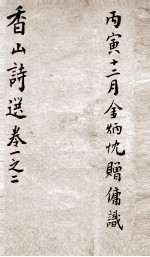 丙寅十二月金炳忱贈傭識
香山詩選卷一之二